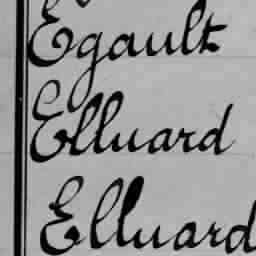 Egault
Elluard
Elluard